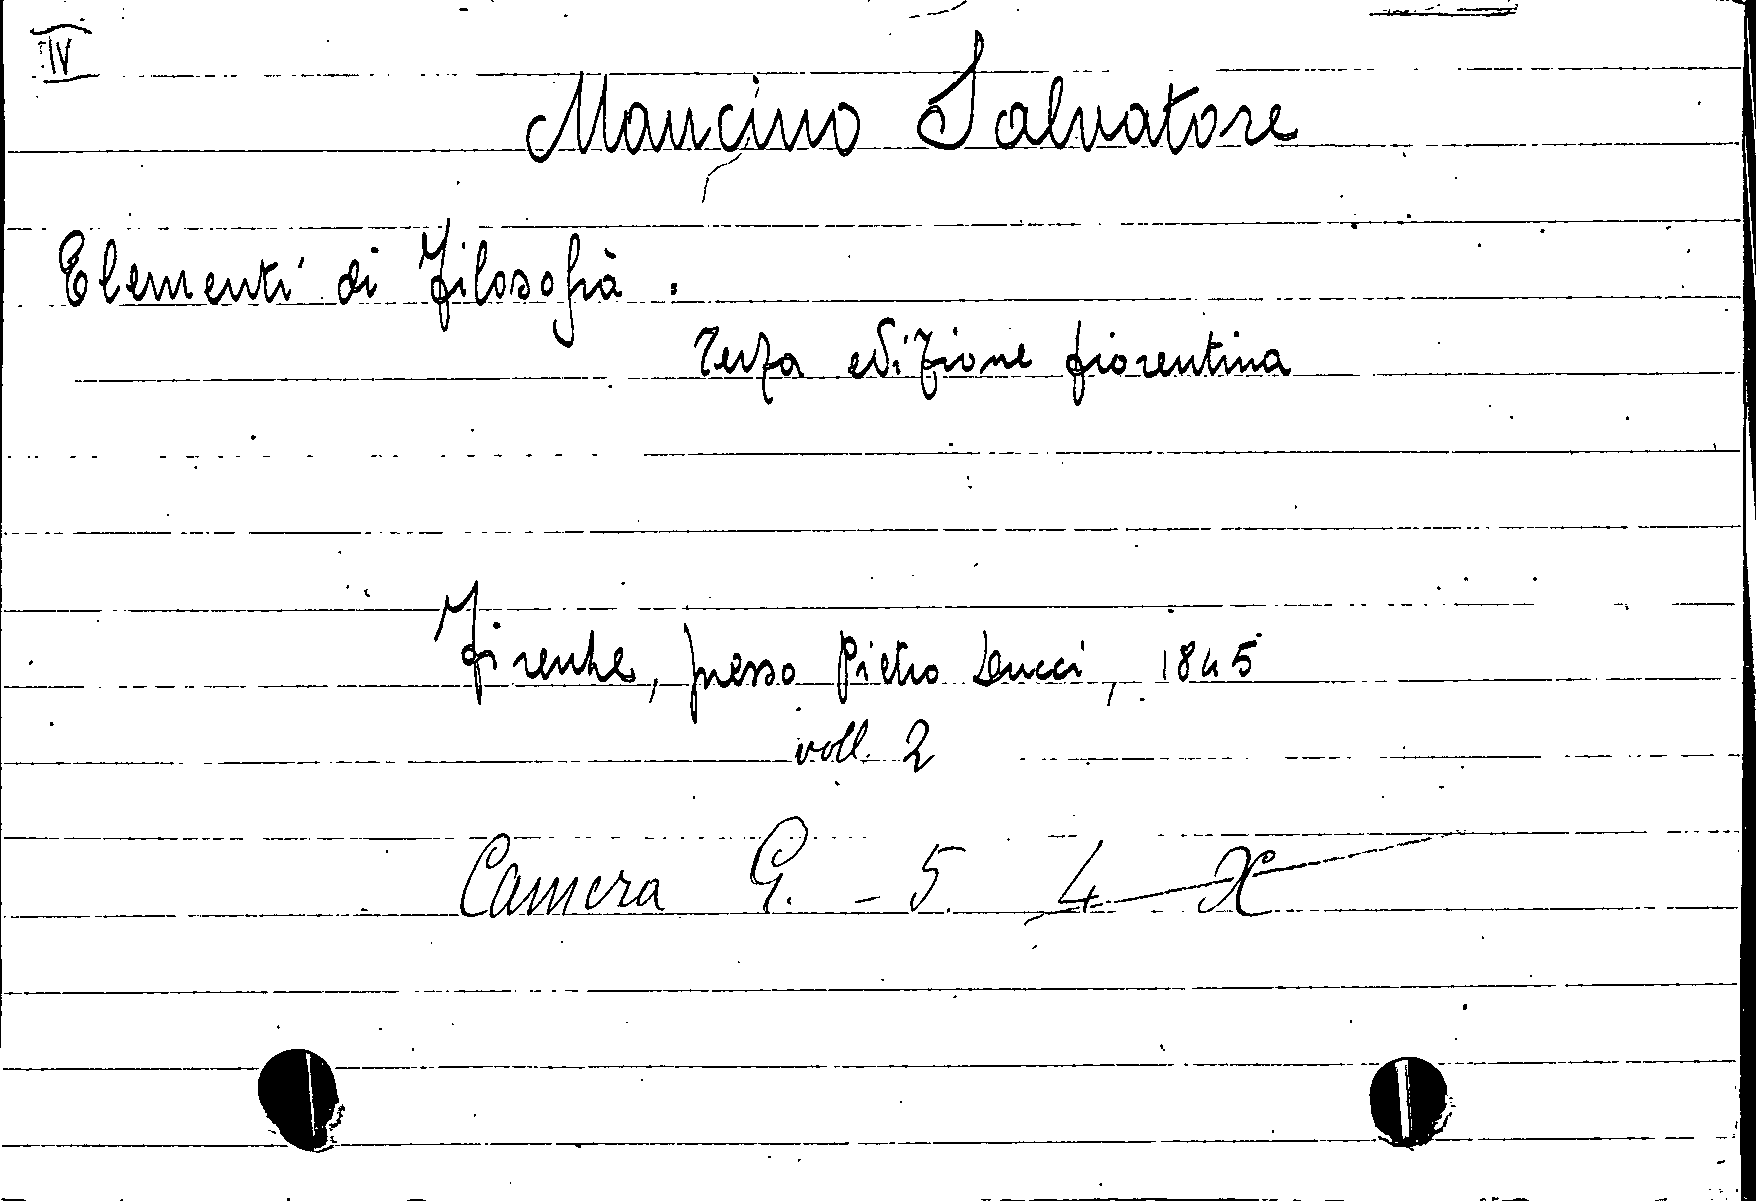 IV
Mancino Salvatore
Elementi di Filosofia.
Terza edizione fiorentina
Firenze, presso Pietro Ducci, 1845
voll. 2
Camera G. - 5. 4 X